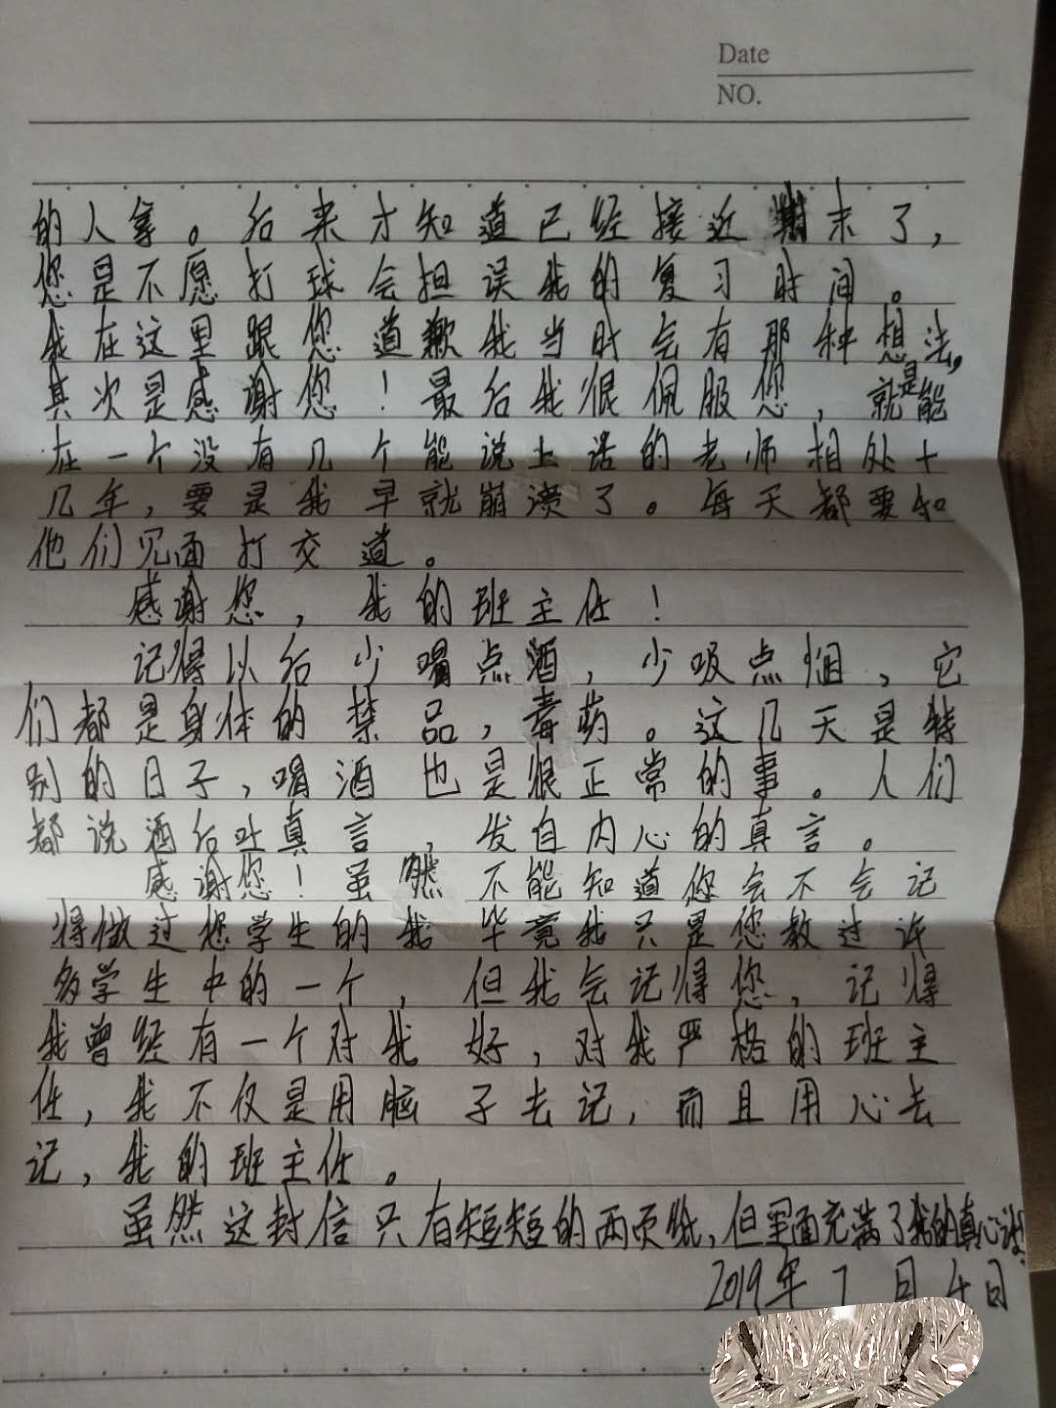 Date
NO.
的人拿。后来才知道已经接近期末了，
您是不愿打球会担误我的复习时间。
我在这里跟您道歉我当时会有那种想法，
其次是感谢您！最后我很佩服您，就是能
在一个没有几个能说上话的老师相处十
几年，要是我早就崩溃了。每天都要和
他们见面打交道。
感谢您，我的班主任！
记得以后少喝点酒，少吸点烟，它
们都是身体的禁品，毒药。这几天是特
别的日子，喝酒也是很正常的事。人们
都说酒后吐真言，发自内心的真言。
感谢您！虽然不能知道您会不会记
得做过您学生的我 毕竟我只是您教过许
多学生中的一个，但我会记得您，记得
我曾经有一个对我好，对我严格的班主
任，我不仅是用脑子去记，而且用心去
记，我的班主任。
虽然这封信只有短短的两页纸，但里面充满了我的真心话！
2019年7月4日